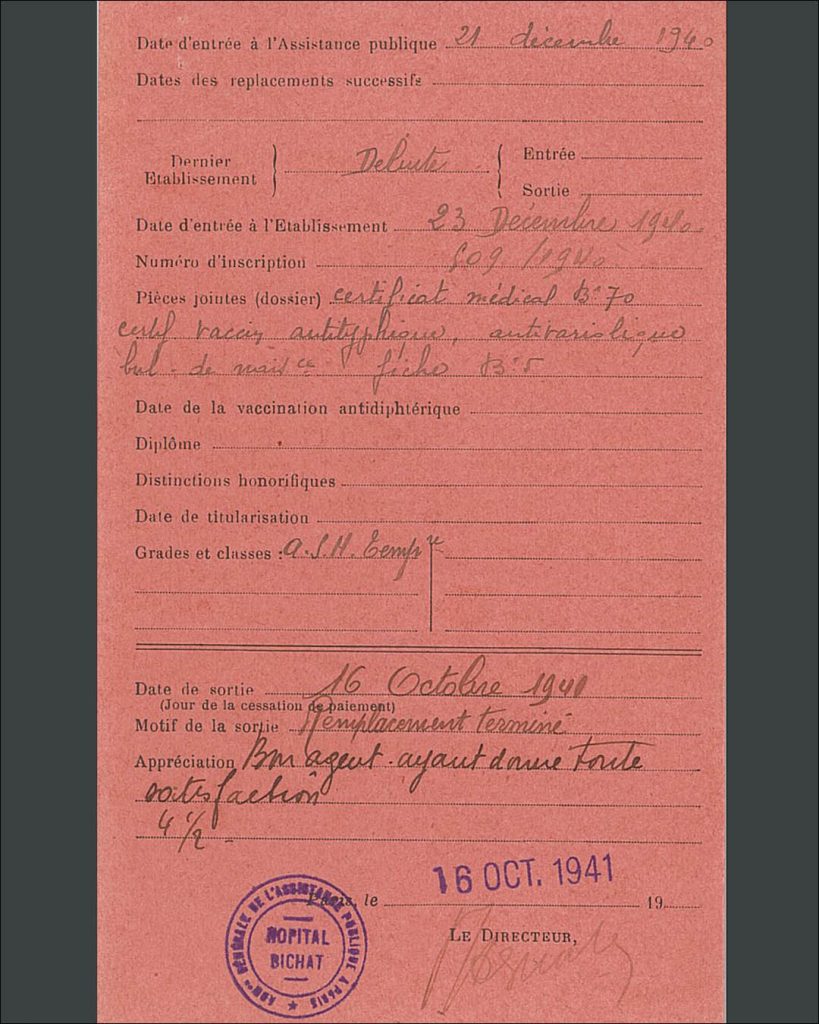 Date d'entrée à l'Assistance publique 21 décembre 1940
Dates des replacements successifs
Dernier Etablissement Débute Entrée
Sortie
Date d'entrée à l'Etablissement 23 Décembre 1940
Numéro d'inscription 509 /1940
Pièces jointes (dossier) certificat médical B 70
certf vaccin antityphique, antivariolique
bul. de naisce fiche B 5
Date de la vaccination antidiphtérique
Diplôme
Distinctions honorifiques
Date de titularisation
Grades et classes : A.S.H. Tempre
Date de sortie 16 Octobre 1941
(Jour de la cessation de paiement)
Motif de la sortie Remplacement terminé
Appréciation Bon agent. ayant donné toute
satisfaction
4 1/2
16 OCT. 1941
Paris, le 19
LE DIRECTEUR,
ADMon GÉNÉRALE DE L'ASSISTANCE PUBLIQUE A PARIS
HOPITAL
BICHAT